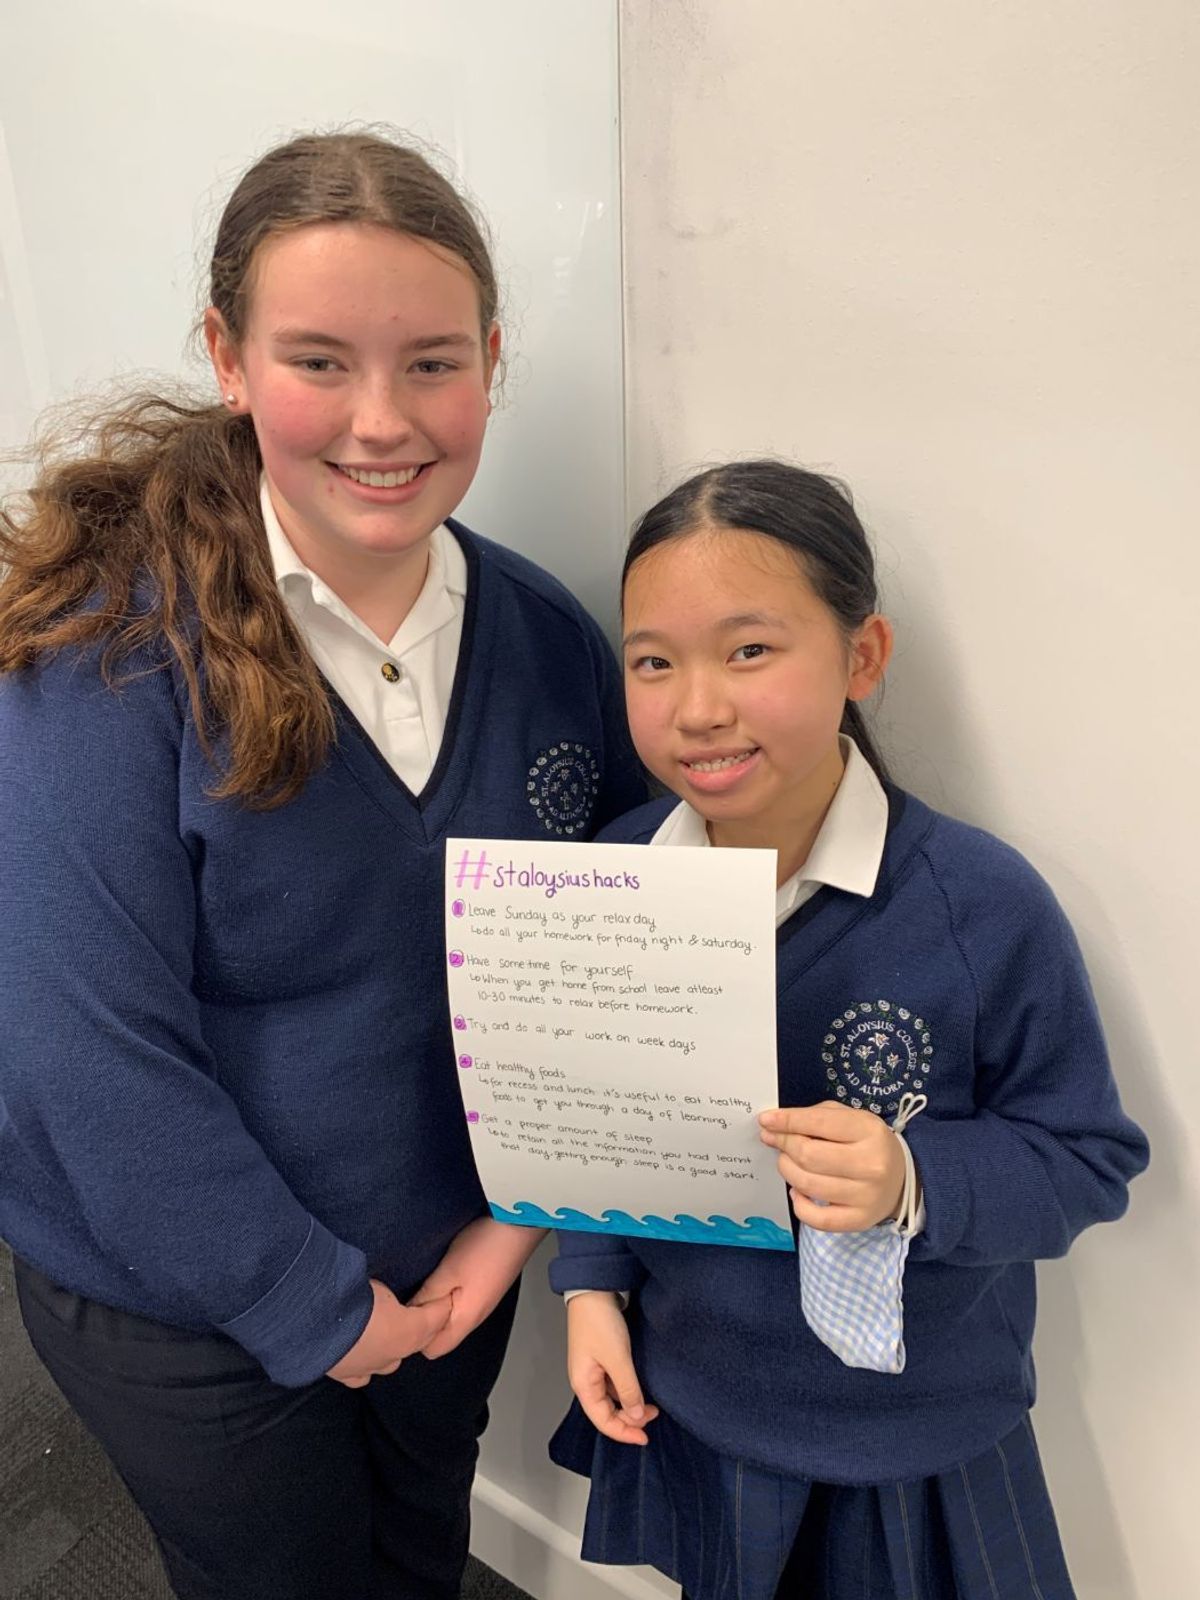 #staloysiushacks
1 Leave Sunday as your relax day
↳ do all your homework for friday night & saturday.
2 Have some time for yourself
↳ When you get home from school leave atleast
10-30 minutes to relax before homework.
3 Try and do all your work on week days
4 Eat healthy foods
↳ for recess and lunch it's useful to eat healthy
foods to get you through a day of learning.
5 Get a proper amount of sleep
↳ to retain all the information you had learnt
that day, getting enough sleep is a good start.
ST. ALOYSIUS COLLEGE
AD ALTIORA
ST. ALOYSIUS COLLEGE
AD ALTIORA